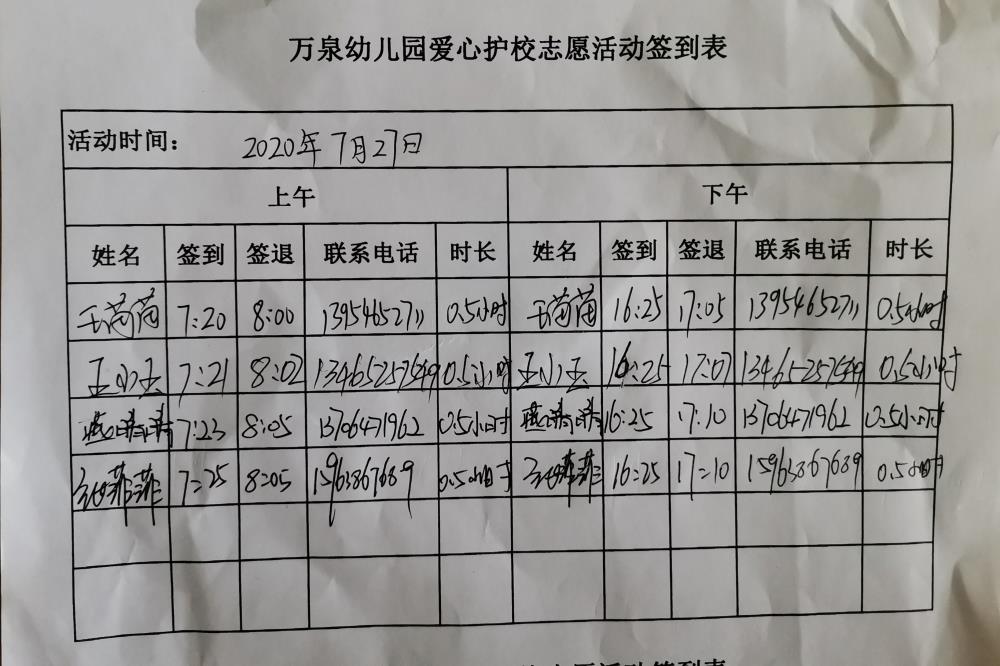 万泉幼儿园爱心护校志愿活动签到表
活动时间: 2020年7月27日
上午 下午
姓名 签到 签退 联系电话 时长 姓名 签到 签退 联系电话 时长
王茵茵 7:20 8:00 13954652711 0.5小时 王茵茵 16:25 17:05 13954652711 0.5小时
王小玉 7:21 8:02 13465257649 0.5小时 王小玉 16:25 17:07 13465257649 0.5小时
7:23 8:05 13706471962 0.5小时 16:25 17:10 13706471962 0.5小时
菲菲 7:25 8:05 15963867689 0.5小时 菲菲 16:25 17:10 15963867689 0.5小时
志愿活动签到表